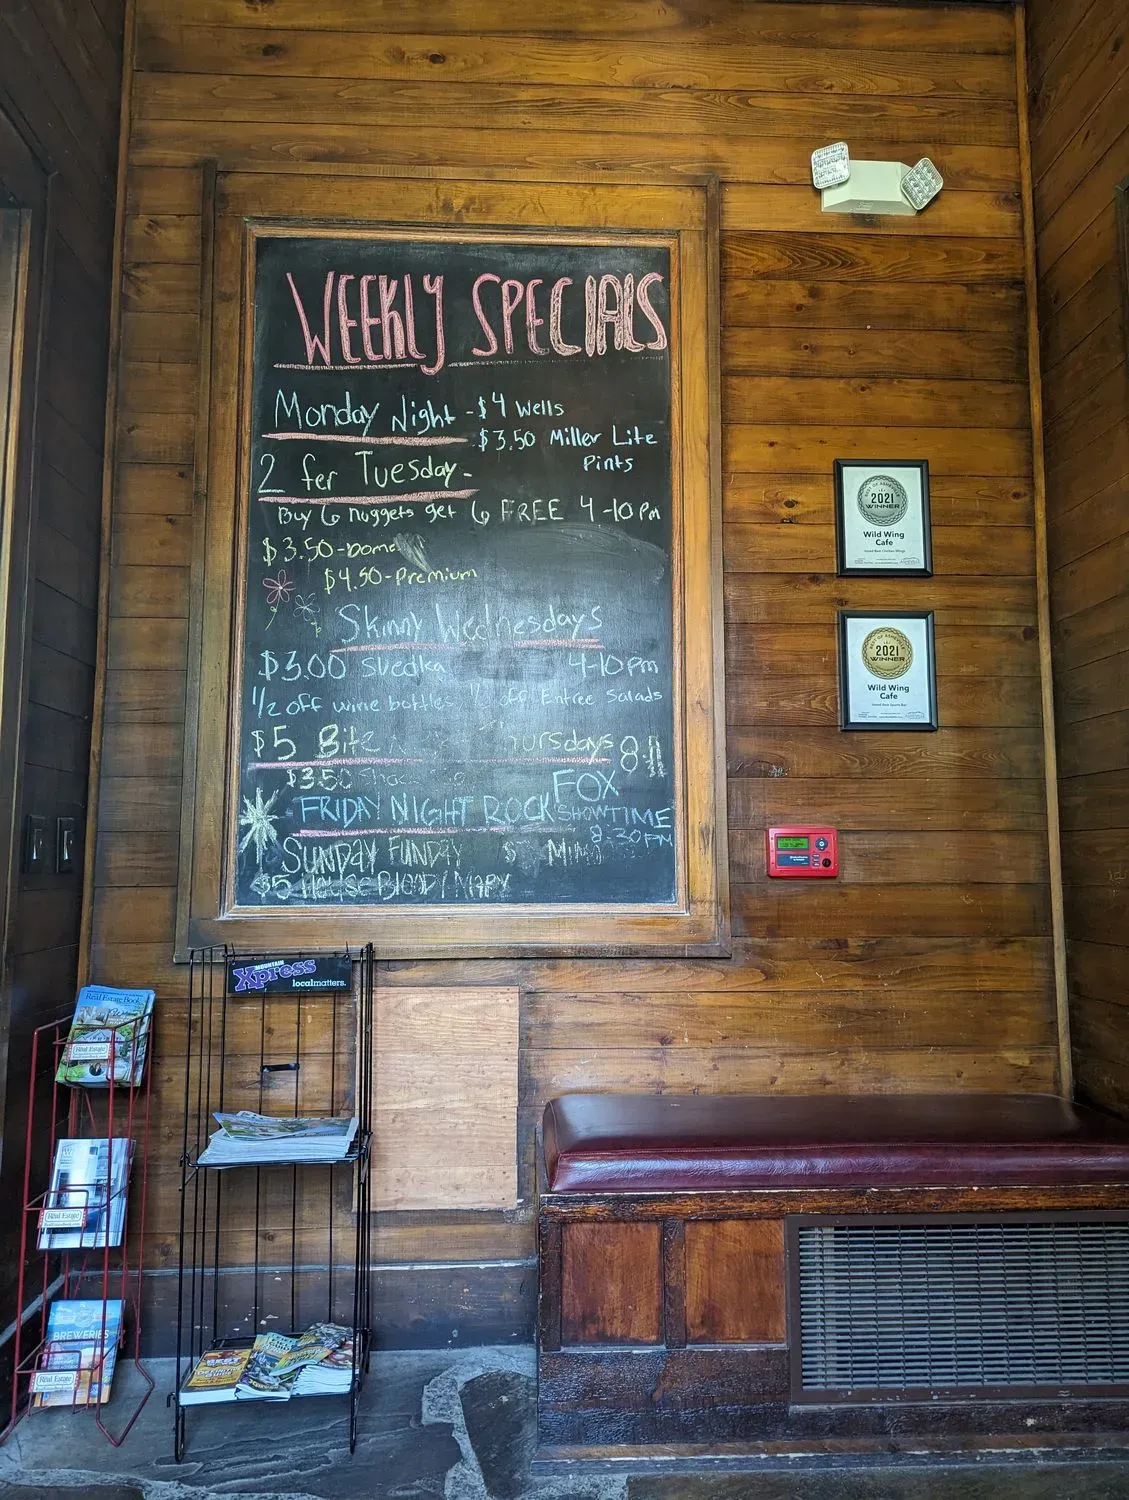 WEEKLY SPECIALS
Monday Night - $4 Wells
$3.50 Miller Lite
Pints
2 fer Tuesday -
Buy 6 nuggets get 6 FREE 4-10pm
$3.50-Dome
$4.50-Premium
Skinny Wednesdays
$3.00 Svedka 4-10pm
1/2 off wine bottle 1/2 off Entree Salads
$5 8-11
$3.50
FOX
FRIDAY NIGHT ROCK SHOWTIME
8:30PM
SUNDAY FUNDAY
$5 House BLOODY MARY
2021
WINNER
Wild Wing
Cafe
2021
WINNER
Wild Wing
Cafe
MOUNTAIN
Xpress
localmatters.
Real Estate Book
Real Estate
Real Estate
BREWERIES
Real Estate
BEST